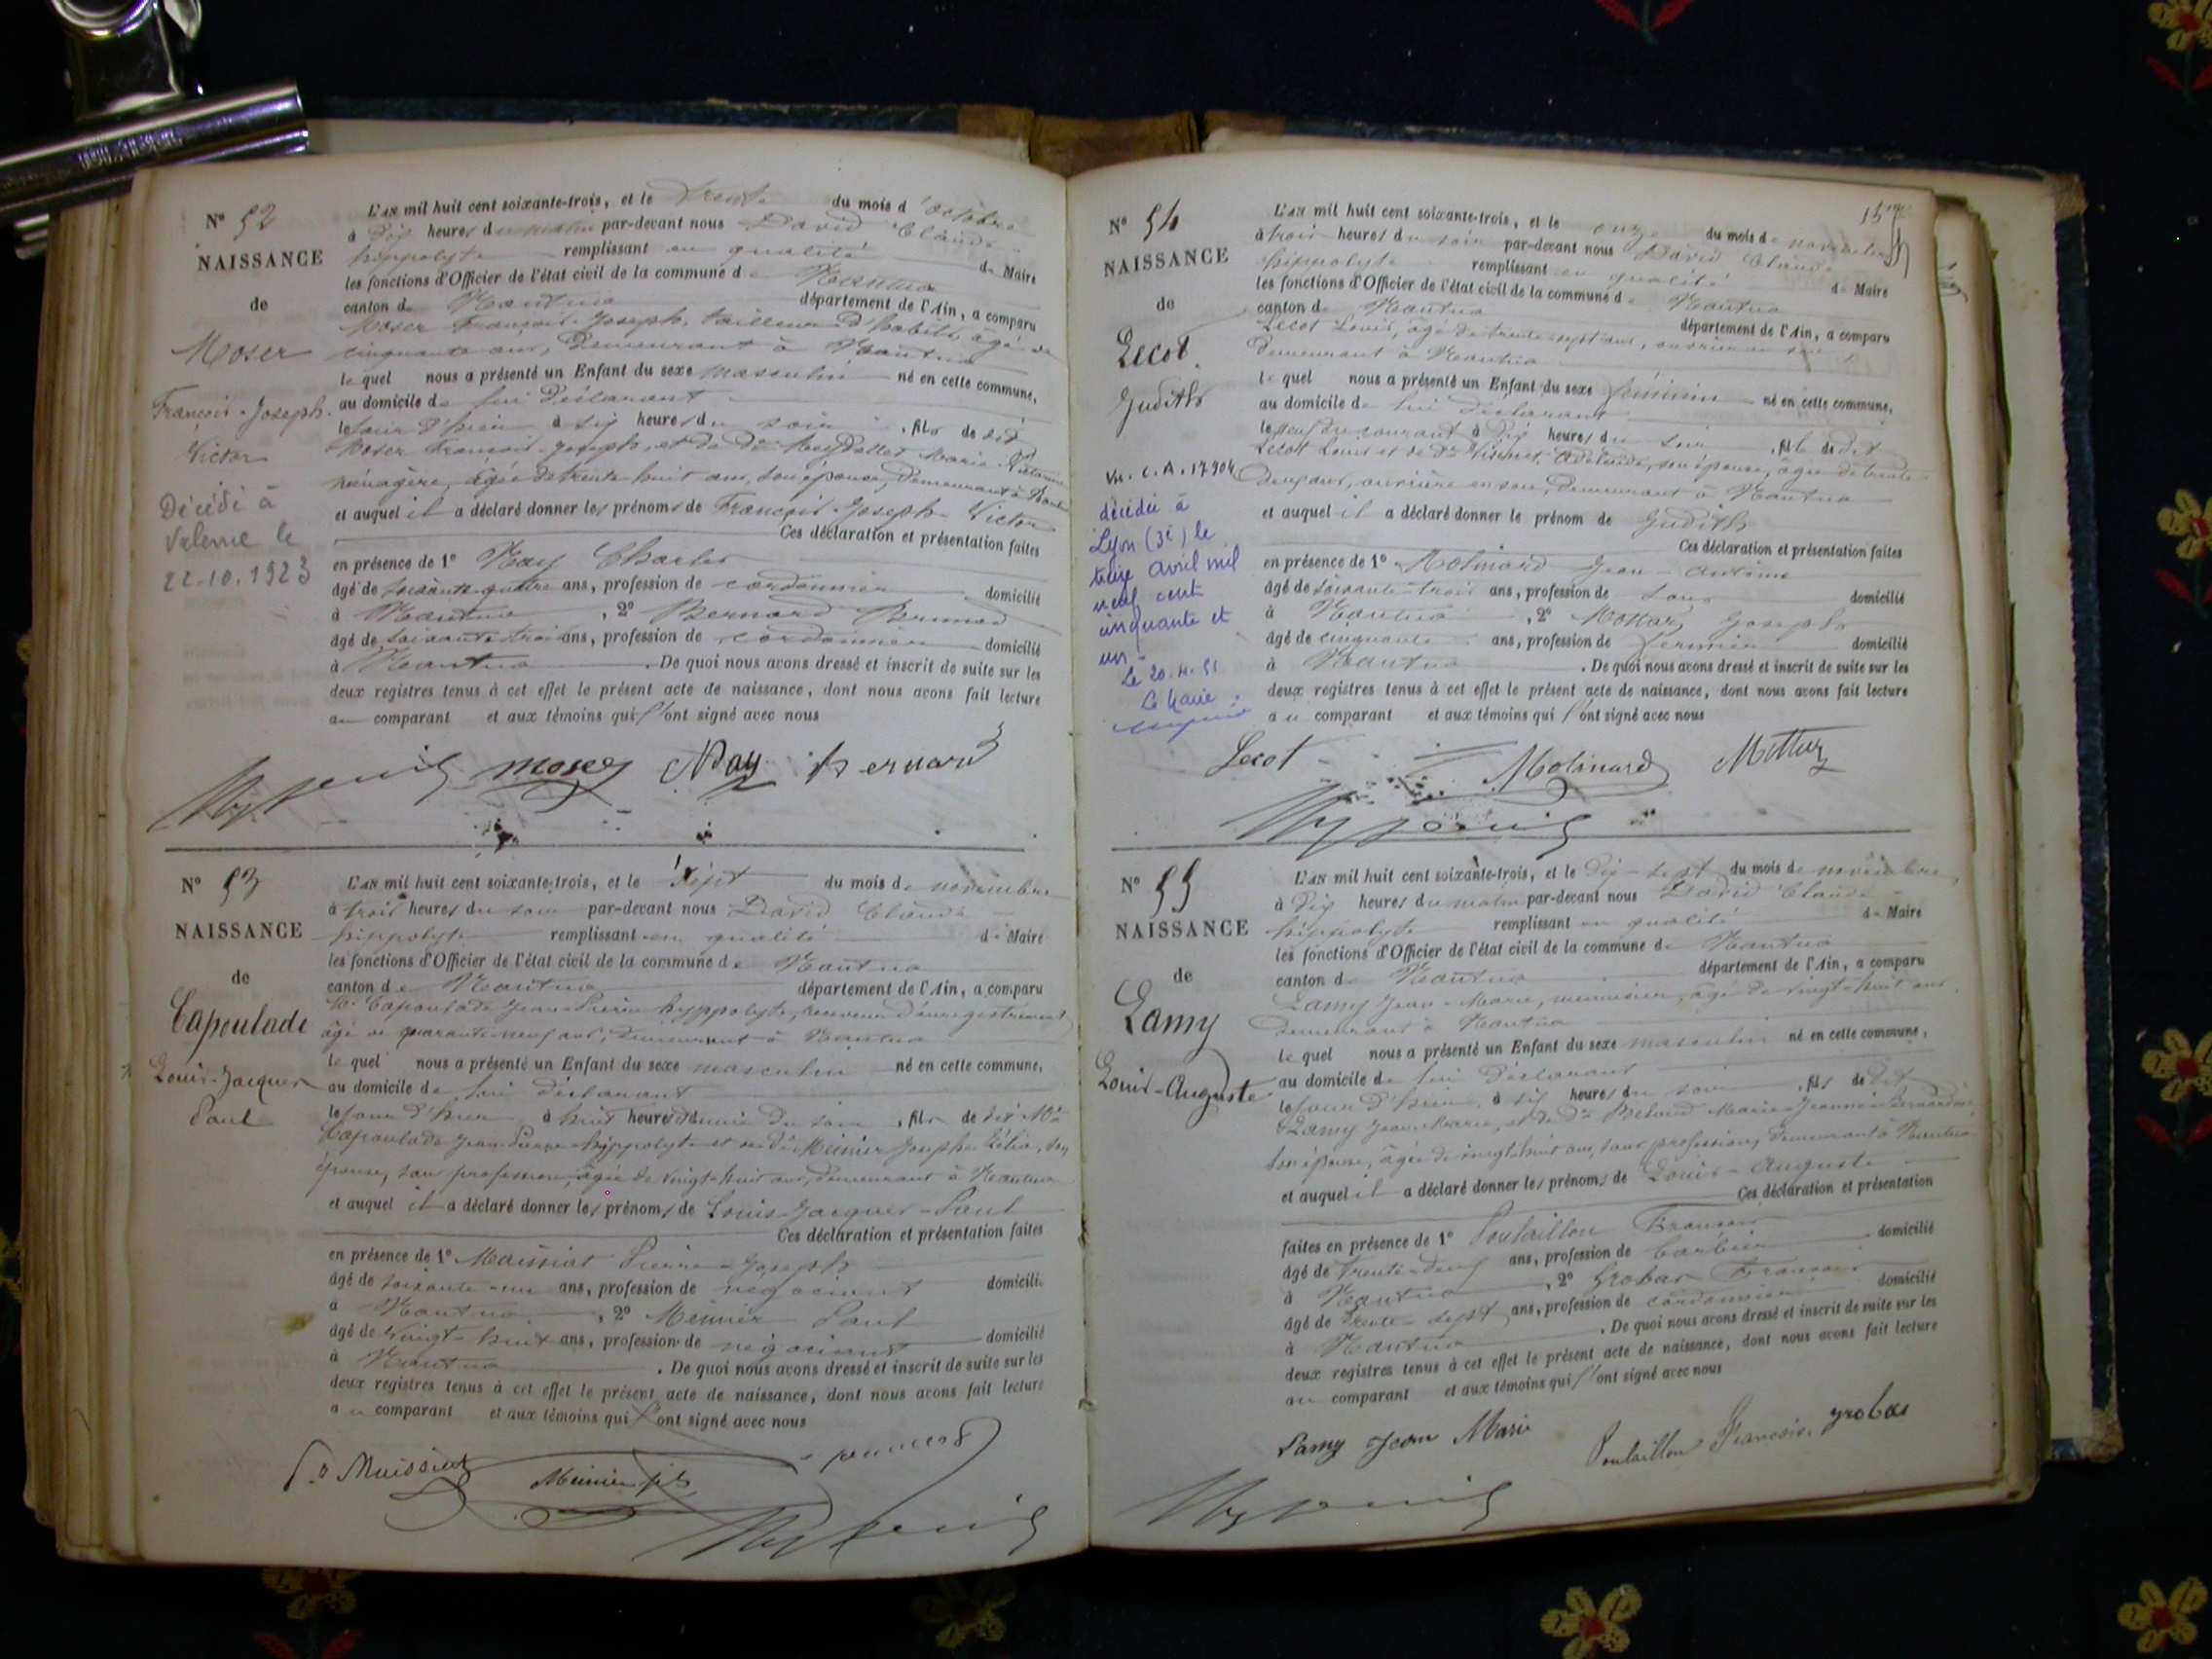 N° 52
NAISSANCE
de
Moser
François-Joseph
Victor
Décédé à
Valence le
22-10-1923
L'AN mil huit cent soixante-trois, et le trente du mois d'octobre
à dix heures du matin par-devant nous David Claude
hippolyte remplissant en qualité de Maire
les fonctions d'Officier de l'état civil de la commune de Nantua
canton de Nantua département de l'Ain, a comparu
Moser François-Joseph, tailleur d'habits, âgé de
cinquante ans, demeurant à Nantua
lequel nous a présenté un Enfant du sexe masculin né en cette commune,
au domicile de lui déclarant
le jour d'hier à six heures du soir, fils de dit
Moser François-Joseph, et de de Marie Victorine
ménagère, âgée de trente huit ans, son épouse, demeurant à Nantua
et auquel il a déclaré donner les prénoms de François-Joseph Victor
Ces déclaration et présentation faites
en présence de 1° Nay Charles
âgé de soixante-quatre ans, profession de cordonnier domicilié
à Nantua, 2° Bernard
âgé de soixante trois ans, profession de cordonnier domicilié
à Nantua. De quoi nous avons dressé et inscrit de suite sur les
deux registres tenus à cet effet le présent acte de naissance, dont nous avons fait lecture
au comparant et aux témoins qui l'ont signé avec nous
moser Nay Bernard
N° 53
NAISSANCE
de
Capoulade
Louis-Jacques
Paul
L'AN mil huit cent soixante-trois, et le sept du mois de novembre
à trois heures du soir par-devant nous David Claude
hippolyte remplissant en qualité de Maire
les fonctions d'Officier de l'état civil de la commune de Nantua
canton de Nantua département de l'Ain, a comparu
Mr Capoulade Jean-Pierre hyppolyte, receveur d'enregistrement
âgé de quarante-neuf ans, demeurant à Nantua
lequel nous a présenté un Enfant du sexe masculin né en cette commune,
au domicile de lui déclarant
le jour d'hier à huit heures demie du soir, fils de dit Mr
Capoulade Jean-Pierre-hyppolyte et de de Meunier Josephe Zélia, son
épouse, sans profession, âgée de vingt-huit ans, demeurant à Nantua
et auquel il a déclaré donner les prénoms de Louis-Jacques-Paul
Ces déclaration et présentation faites
en présence de 1° Maissiat Pierre-Joseph
âgé de soixante-un ans, profession de négociant domicilié
à Nantua, 2° Meunier Paul
âgé de vingt-huit ans, profession de négociant domicilié
à Nantua. De quoi nous avons dressé et inscrit de suite sur les
deux registres tenus à cet effet le présent acte de naissance, dont nous avons fait lecture
au comparant et aux témoins qui l'ont signé avec nous
Maissiat Meunier fils
N° 54
NAISSANCE
de
Lecot
Judith
décédée à
Lyon (3e) le
treize avril mil
neuf cent
cinquante et
un
Le 20.4.51
Le Maire
L'AN mil huit cent soixante-trois, et le onze du mois de novembre
à trois heures du soir par-devant nous David Claude
hippolyte remplissant en qualité de Maire
les fonctions d'Officier de l'état civil de la commune de Nantua
canton de Nantua département de l'Ain, a comparu
Lecot Louis, âgé de trente-sept ans, ouvrier en soie
demeurant à Nantua
lequel nous a présenté un Enfant du sexe féminin né en cette commune,
au domicile de lui déclarant
le neuf du courant à dix heures du soir, fille de dit
Lecot Louis et de de Adélaïde, son épouse, âgée de trente
deux ans, ouvrière en soie, demeurant à Nantua
et auquel il a déclaré donner le prénom de Judith
Ces déclaration et présentation faites
en présence de 1° Molinard Jean-Antoine
âgé de soixante-trois ans, profession de sans domicilié
à Nantua, 2° Joseph
âgé de cinquante ans, profession de domicilié
à Nantua. De quoi nous avons dressé et inscrit de suite sur les
deux registres tenus à cet effet le présent acte de naissance, dont nous avons fait lecture
au comparant et aux témoins qui l'ont signé avec nous
Lecot Molinard
N° 55
NAISSANCE
de
Lamy
Louis-Auguste
L'AN mil huit cent soixante-trois, et le dix-sept du mois de novembre,
à dix heures du matin par-devant nous David Claude
hippolyte remplissant en qualité de Maire
les fonctions d'Officier de l'état civil de la commune de Nantua
canton de Nantua département de l'Ain, a comparu
Lamy Jean-Marie, menuisier, âgé de vingt-huit ans
demeurant à Nantua
lequel nous a présenté un Enfant du sexe masculin né en cette commune,
au domicile de lui déclarant
le jour d'hier, à six heures du soir, fils de dit
Lamy Jean-Marie, et de de Marie-Jeanne-Bernardine
son épouse, âgée de vingt-huit ans, sans profession, demeurant à Nantua
et auquel il a déclaré donner les prénoms de Louis-Auguste
Ces déclaration et présentation
faites en présence de 1° Poulaillon François
âgé de trente-deux ans, profession de barbier domicilié
à Nantua, 2° Grobas François
âgé de trente-sept ans, profession de cordonnier domicilié
à Nantua. De quoi nous avons dressé et inscrit de suite sur les
deux registres tenus à cet effet le présent acte de naissance, dont nous avons fait lecture
au comparant et aux témoins qui l'ont signé avec nous
Lamy Jean Marie Poulaillon François grobas